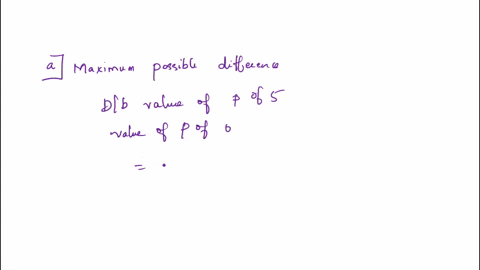 a] Maximum possible difference
D/b value of p of 5
value of p of 0
= .